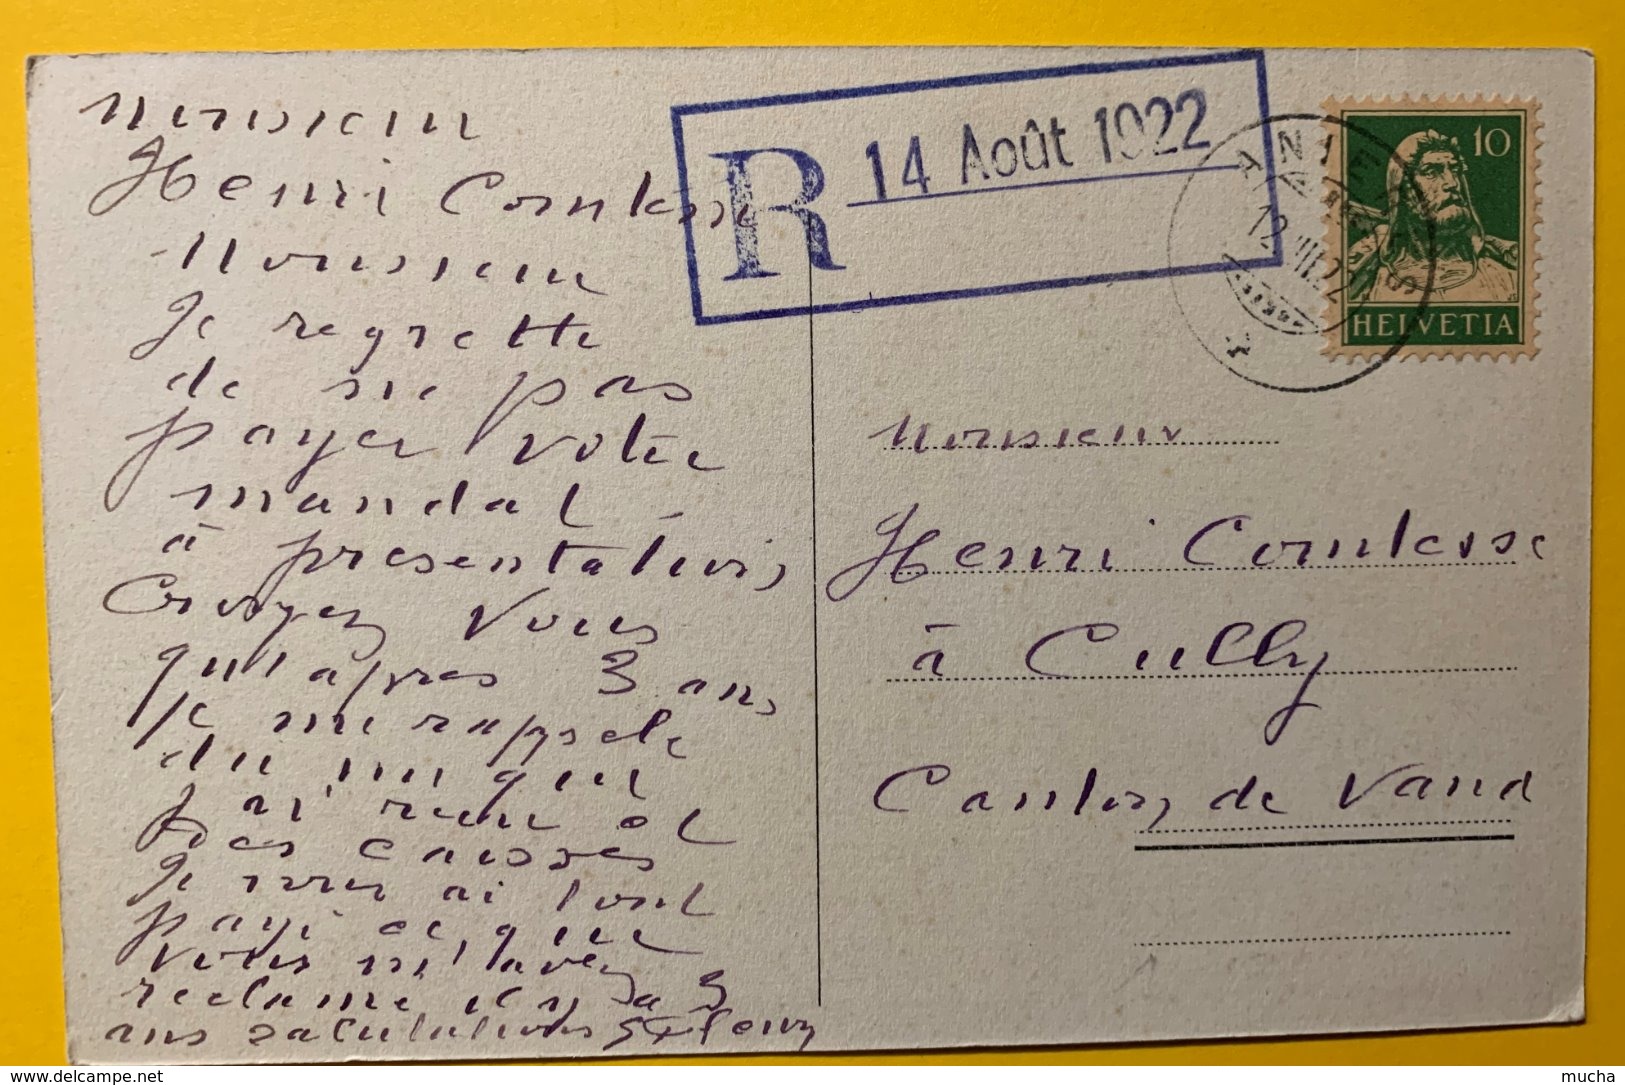 Monsieur
Henri Comtesse
Monsieur
Je regrette
de ne pas
payer votre
mandat
à présentation
Croyez vous
qu'après 3 ans
je me rappele
du
j'ai reçu et
des caisses
Je vous ai tout
payé ce que
vous m'avez
reclamé il y a 3
ans salutations
R 14 Août 1922
ANIE
12 VIII 22
10
HELVETIA
Monsieur
Henri Comtesse
à Cully
Canton de Vaud
www.delcampe.net
mucha